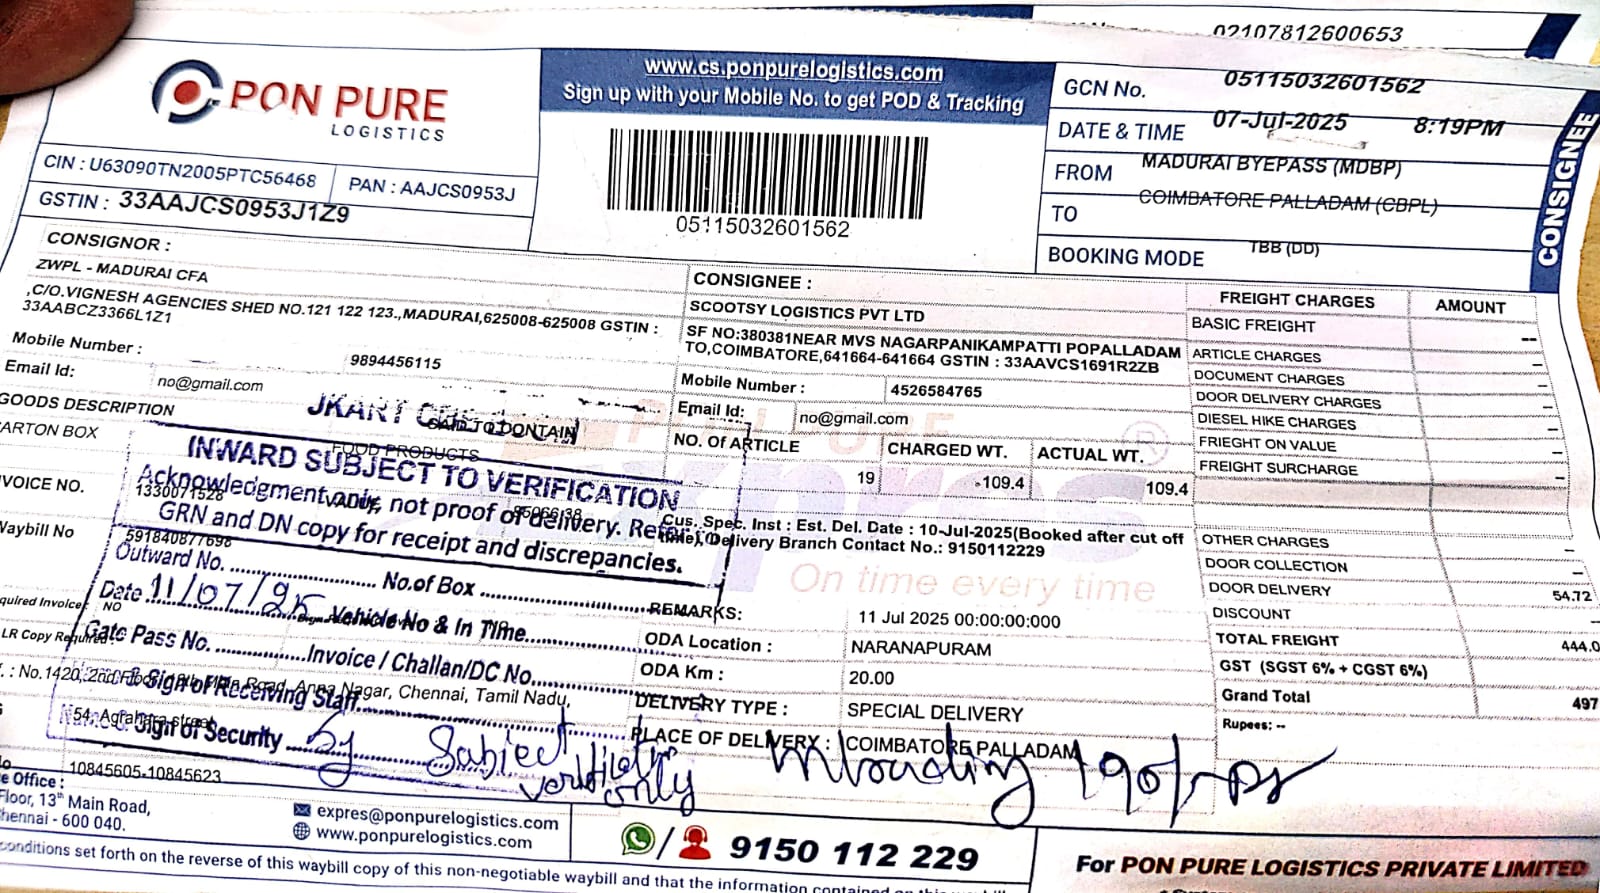 02107812600653
PON PURE
LOGISTICS
CIN : U63090TN2005PTC56468
PAN : AAJCS0953J
GSTIN : 33AAJCS0953J1Z9
www.cs.ponpurelogistics.com
Sign up with your Mobile No. to get POD & Tracking
05115032601562
GCN No. 05115032601562
DATE & TIME 07-Jul-2025 8:19PM
FROM MADURAI BYEPASS (MDBP)
TO COIMBATORE PALLADAM (CBPL)
BOOKING MODE TBB (DD)
CONSIGNEE
CONSIGNOR :
ZWPL - MADURAI CFA
,C/O.VIGNESH AGENCIES SHED NO.121 122 123.,MADURAI,625008-625008 GSTIN :
33AABCZ3366L1Z1
Mobile Number : 9894456115
Email Id: no@gmail.com
CONSIGNEE :
SCOOTSY LOGISTICS PVT LTD
SF NO:380381NEAR MVS NAGARPANIKAMPATTI POPALLADAM
TO,COIMBATORE,641664-641664 GSTIN : 33AAVCS1691R2ZB
Mobile Number : 4526584765
Email Id: no@gmail.com
FREIGHT CHARGES AMOUNT
BASIC FREIGHT --
ARTICLE CHARGES --
DOCUMENT CHARGES --
DOOR DELIVERY CHARGES --
DIESEL HIKE CHARGES --
FRIEGHT ON VALUE --
FREIGHT SURCHARGE --
OTHER CHARGES --
DOOR COLLECTION --
DOOR DELIVERY 54.72
DISCOUNT --
TOTAL FREIGHT 444.0
GST (SGST 6% + CGST 6%)
Grand Total 497
Rupees: --
GOODS DESCRIPTION
ARTON BOX
SAID TO CONTAIN
FOOD PRODUCTS
NO. Of ARTICLE CHARGED WT. ACTUAL WT.
19 109.4 109.4
VOICE NO. 1330071528
Waybill No 591840877698
Cus. Spec. Inst : Est. Del. Date : 10-Jul-2025(Booked after cut off
time), Delivery Branch Contact No.: 9150112229
On time every time
quired Invoice NO
LR Copy Required
REMARKS: 11 Jul 2025 00:00:00:000
ODA Location : NARANAPURAM
ODA Km : 20.00
DELIVERY TYPE : SPECIAL DELIVERY
PLACE OF DELIVERY : COIMBATORE PALLADAM
JKART
INWARD SUBJECT TO VERIFICATION
Acknowledgment only, not proof of delivery. Refer to
GRN and DN copy for receipt and discrepancies.
Outward No. No.of Box
Date 11/07/25 Vehicle No & In Time
Gate Pass No. Invoice / Challan/DC No.
Sign of Receiving Staff
Sign of Security
Subject
verification
only
unloading 190/- ps
: No.1420, 2nd Floor, 13th Main Road, Anna Nagar, Chennai, Tamil Nadu,
54, Agrahara street
10845605-10845623
e Office :
Floor, 13th Main Road,
hennai - 600 040.
expres@ponpurelogistics.com
www.ponpurelogistics.com
9150 112 229
For PON PURE LOGISTICS PRIVATE LIMITED
conditions set forth on the reverse of this waybill copy of this non-negotiable waybill and that the information contained